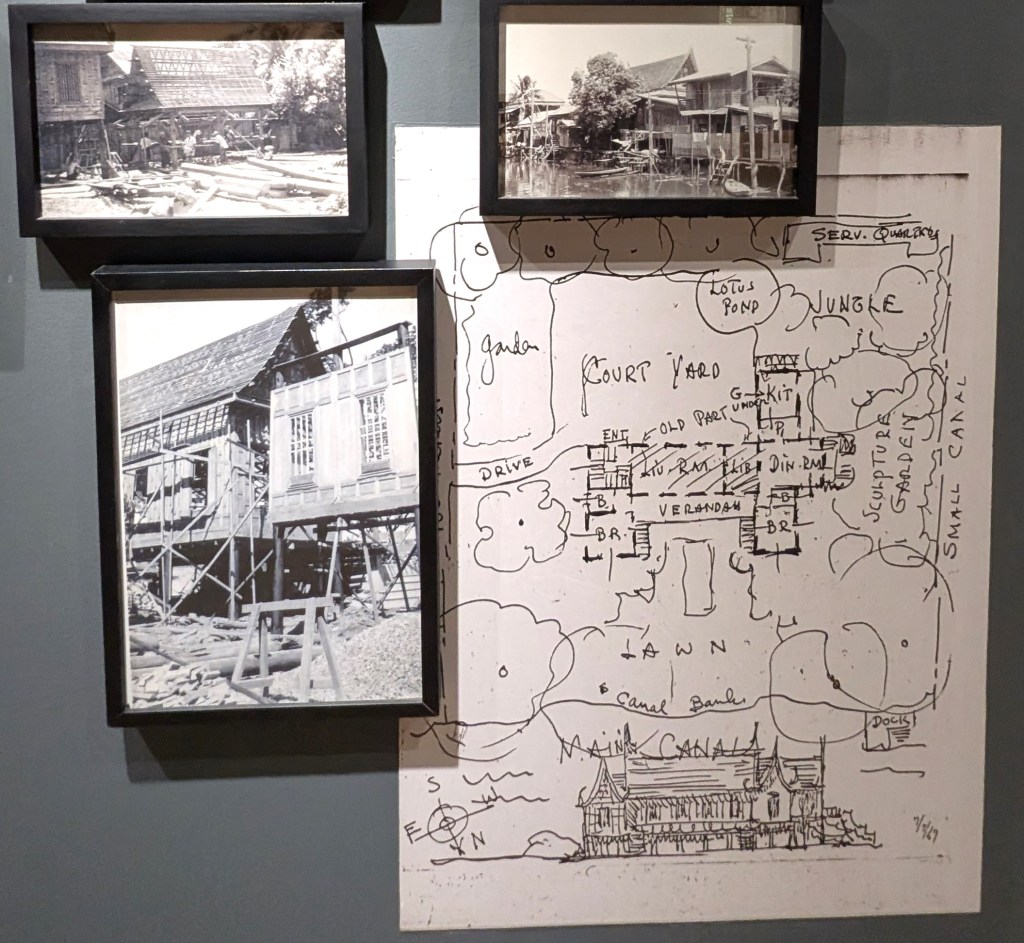 SERV. QUARTERS
LOTUS
POND
JUNGLE
garden
COURT YARD
G
UNDER
KIT
OLD PART
P.
ENT
DRIVE
LIV. RM
LIB
DIN. RM
B
VERANDAH
B
BR
BR
SCULPTURE
GARDEN
SMALL CANAL
LAWN
Canal Bank
DOCK
MAIN CANAL
S
W
E
N